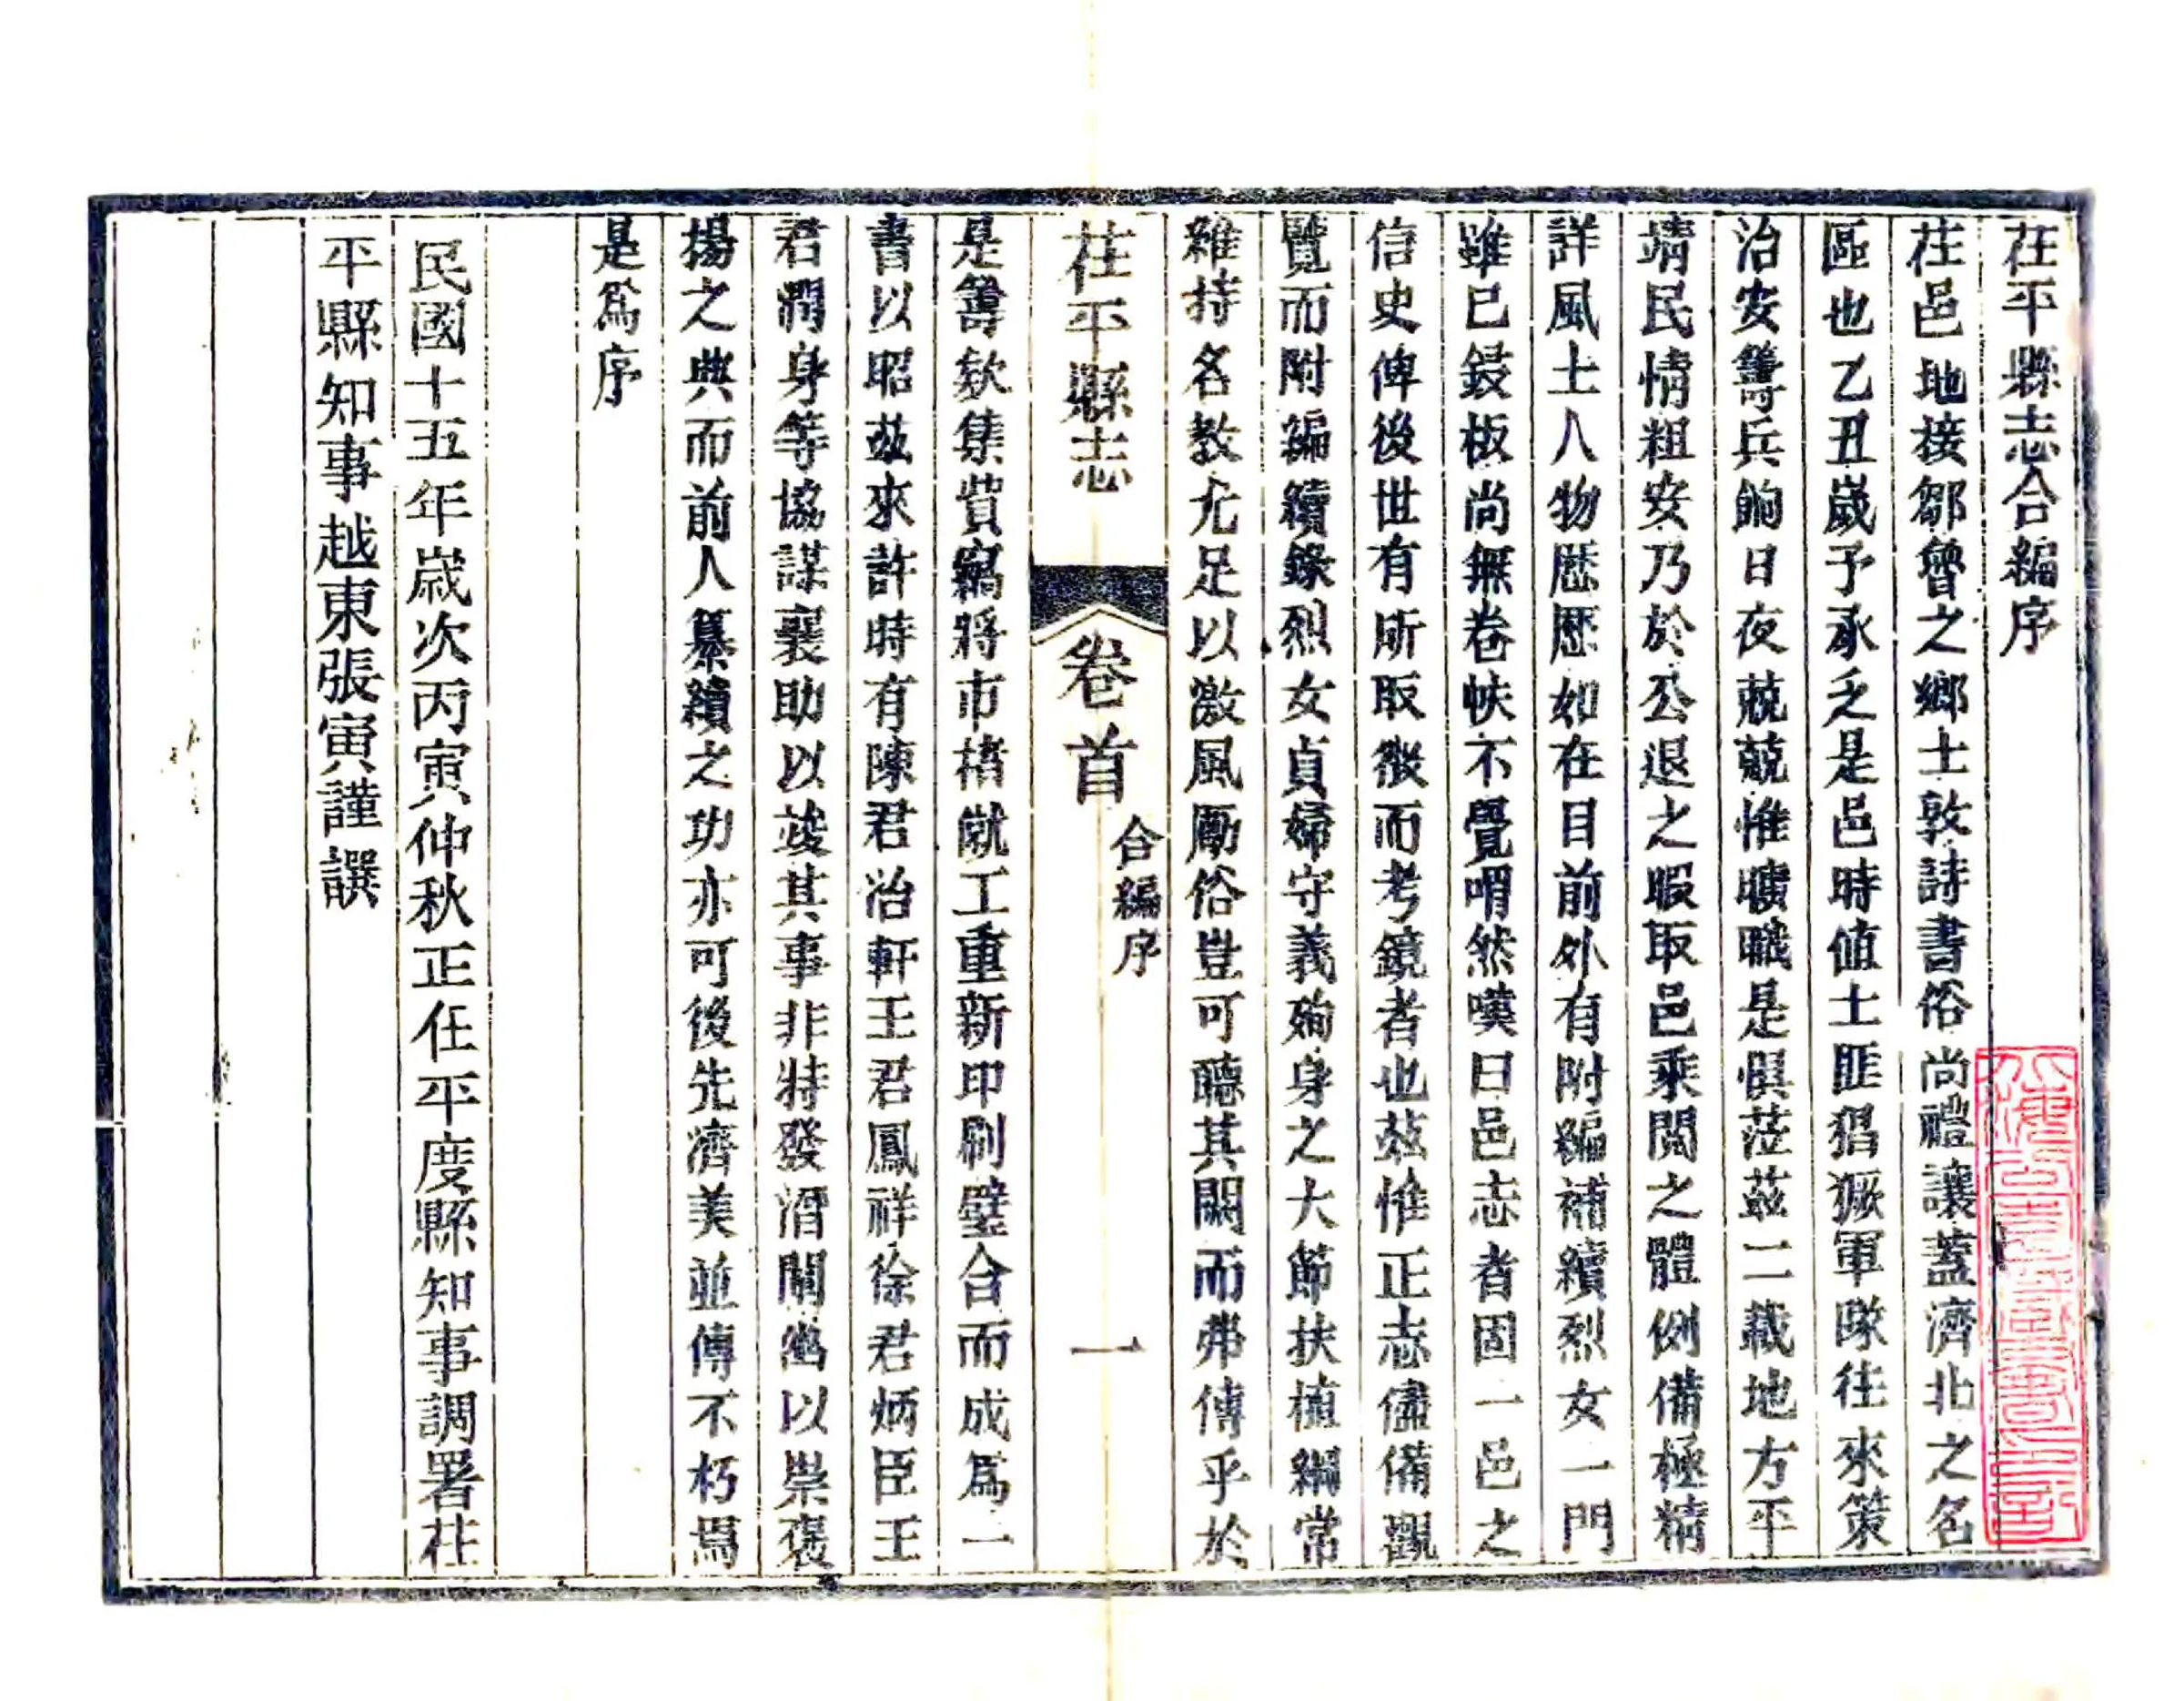 茌平縣志合編序
茌邑地接鄒魯之鄉士敦詩書俗尚禮讓蓋濟北之名
區也乙丑歲予承乏是邑時值土匪猖獗軍隊往來策
治安籌兵餉日夜兢兢惟曠職是惧蒞茲二載地方平
靖民情粗安乃於公退之暇取邑乘閱之體例備極精
詳風土人物歷歷如在目前外有附編補續烈女一門
雖已鋟板尚無卷帙不覺喟然嘆曰邑志者固一邑之
信史俾後世有所取徵而考鏡者也茲惟正志儘備觀
覽而附編續錄烈女貞婦守義殉身之大節扶植綱常
維持名教尤足以激風勵俗豈可聽其闕而弗傳乎於
茌平縣志
卷首
合編序
一
是籌欵集貲窵將市楮僦工重新印刷璧合而成爲一
書以昭茲來許時有陳君冶軒王君鳳祥徐君炳臣王
君潤身等協謀襄助以竣其事非特發潛闡幽以崇褒
揚之典而前人纂續之功亦可後先濟美並傳不朽焉
是爲序
民國十五年歲次丙寅仲秋正任平度縣知事調署茌
平縣知事越東張寅謹譔